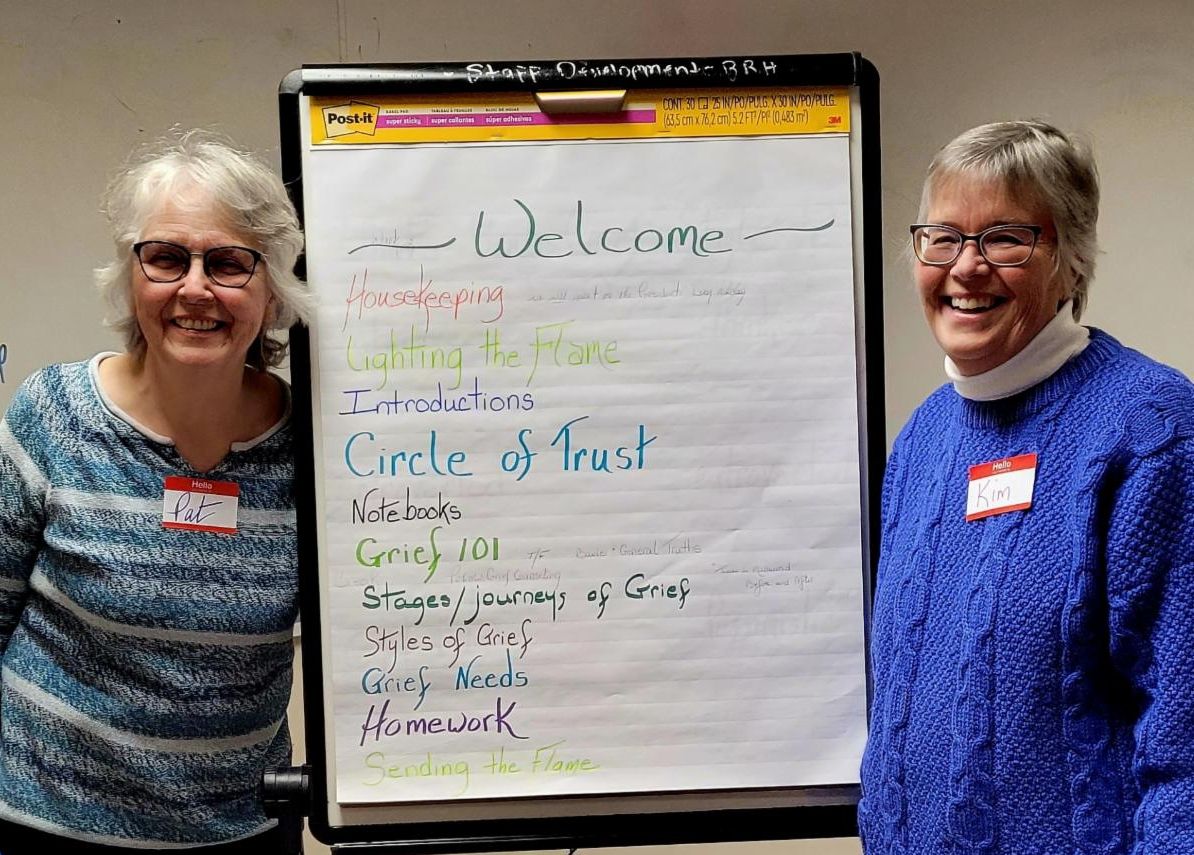 Staff Development - BRH
Post-it
EASEL PAD TABLEAU À FEUILLES BLOC DE HOJAS
super sticky super collantes súper adhesivas
CONT. 30 25 IN/PO/PULG. X 30 IN/PO/PULG.
(63,5 cm x 76,2 cm) 5.2 FT²/PI² (0,483 m²)
3M
Welcome
Housekeeping
Lighting the Flame
Introductions
Circle of Trust
Notebooks
Grief 101 T/F Basic • General Truths
Stages/journeys of Grief
Styles of Grief
Grief Needs
Homework
Sending the Flame
Hello
Pat
Hello
Kim